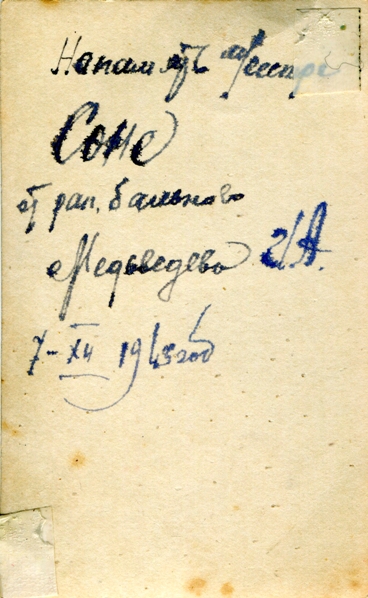 Напамять сестре
Соне
от ран. больного
Медведева И.А.
7-XII 1943 год